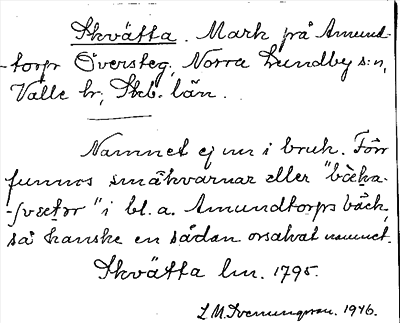 Skvätta. Mark på Amund-
torps Översteg, Norra Lundby s:n,
Valle hr, Skb. län.
Namnet ej nu i bruk. Förr
funnos småkvarnar eller "bäcka-
-skvætər" i bl. a. Amundtorps bäck,
så kanske en sådan orsakat namnet.
Skvätta lm. 1795.
L M Svenungsson. 1946.